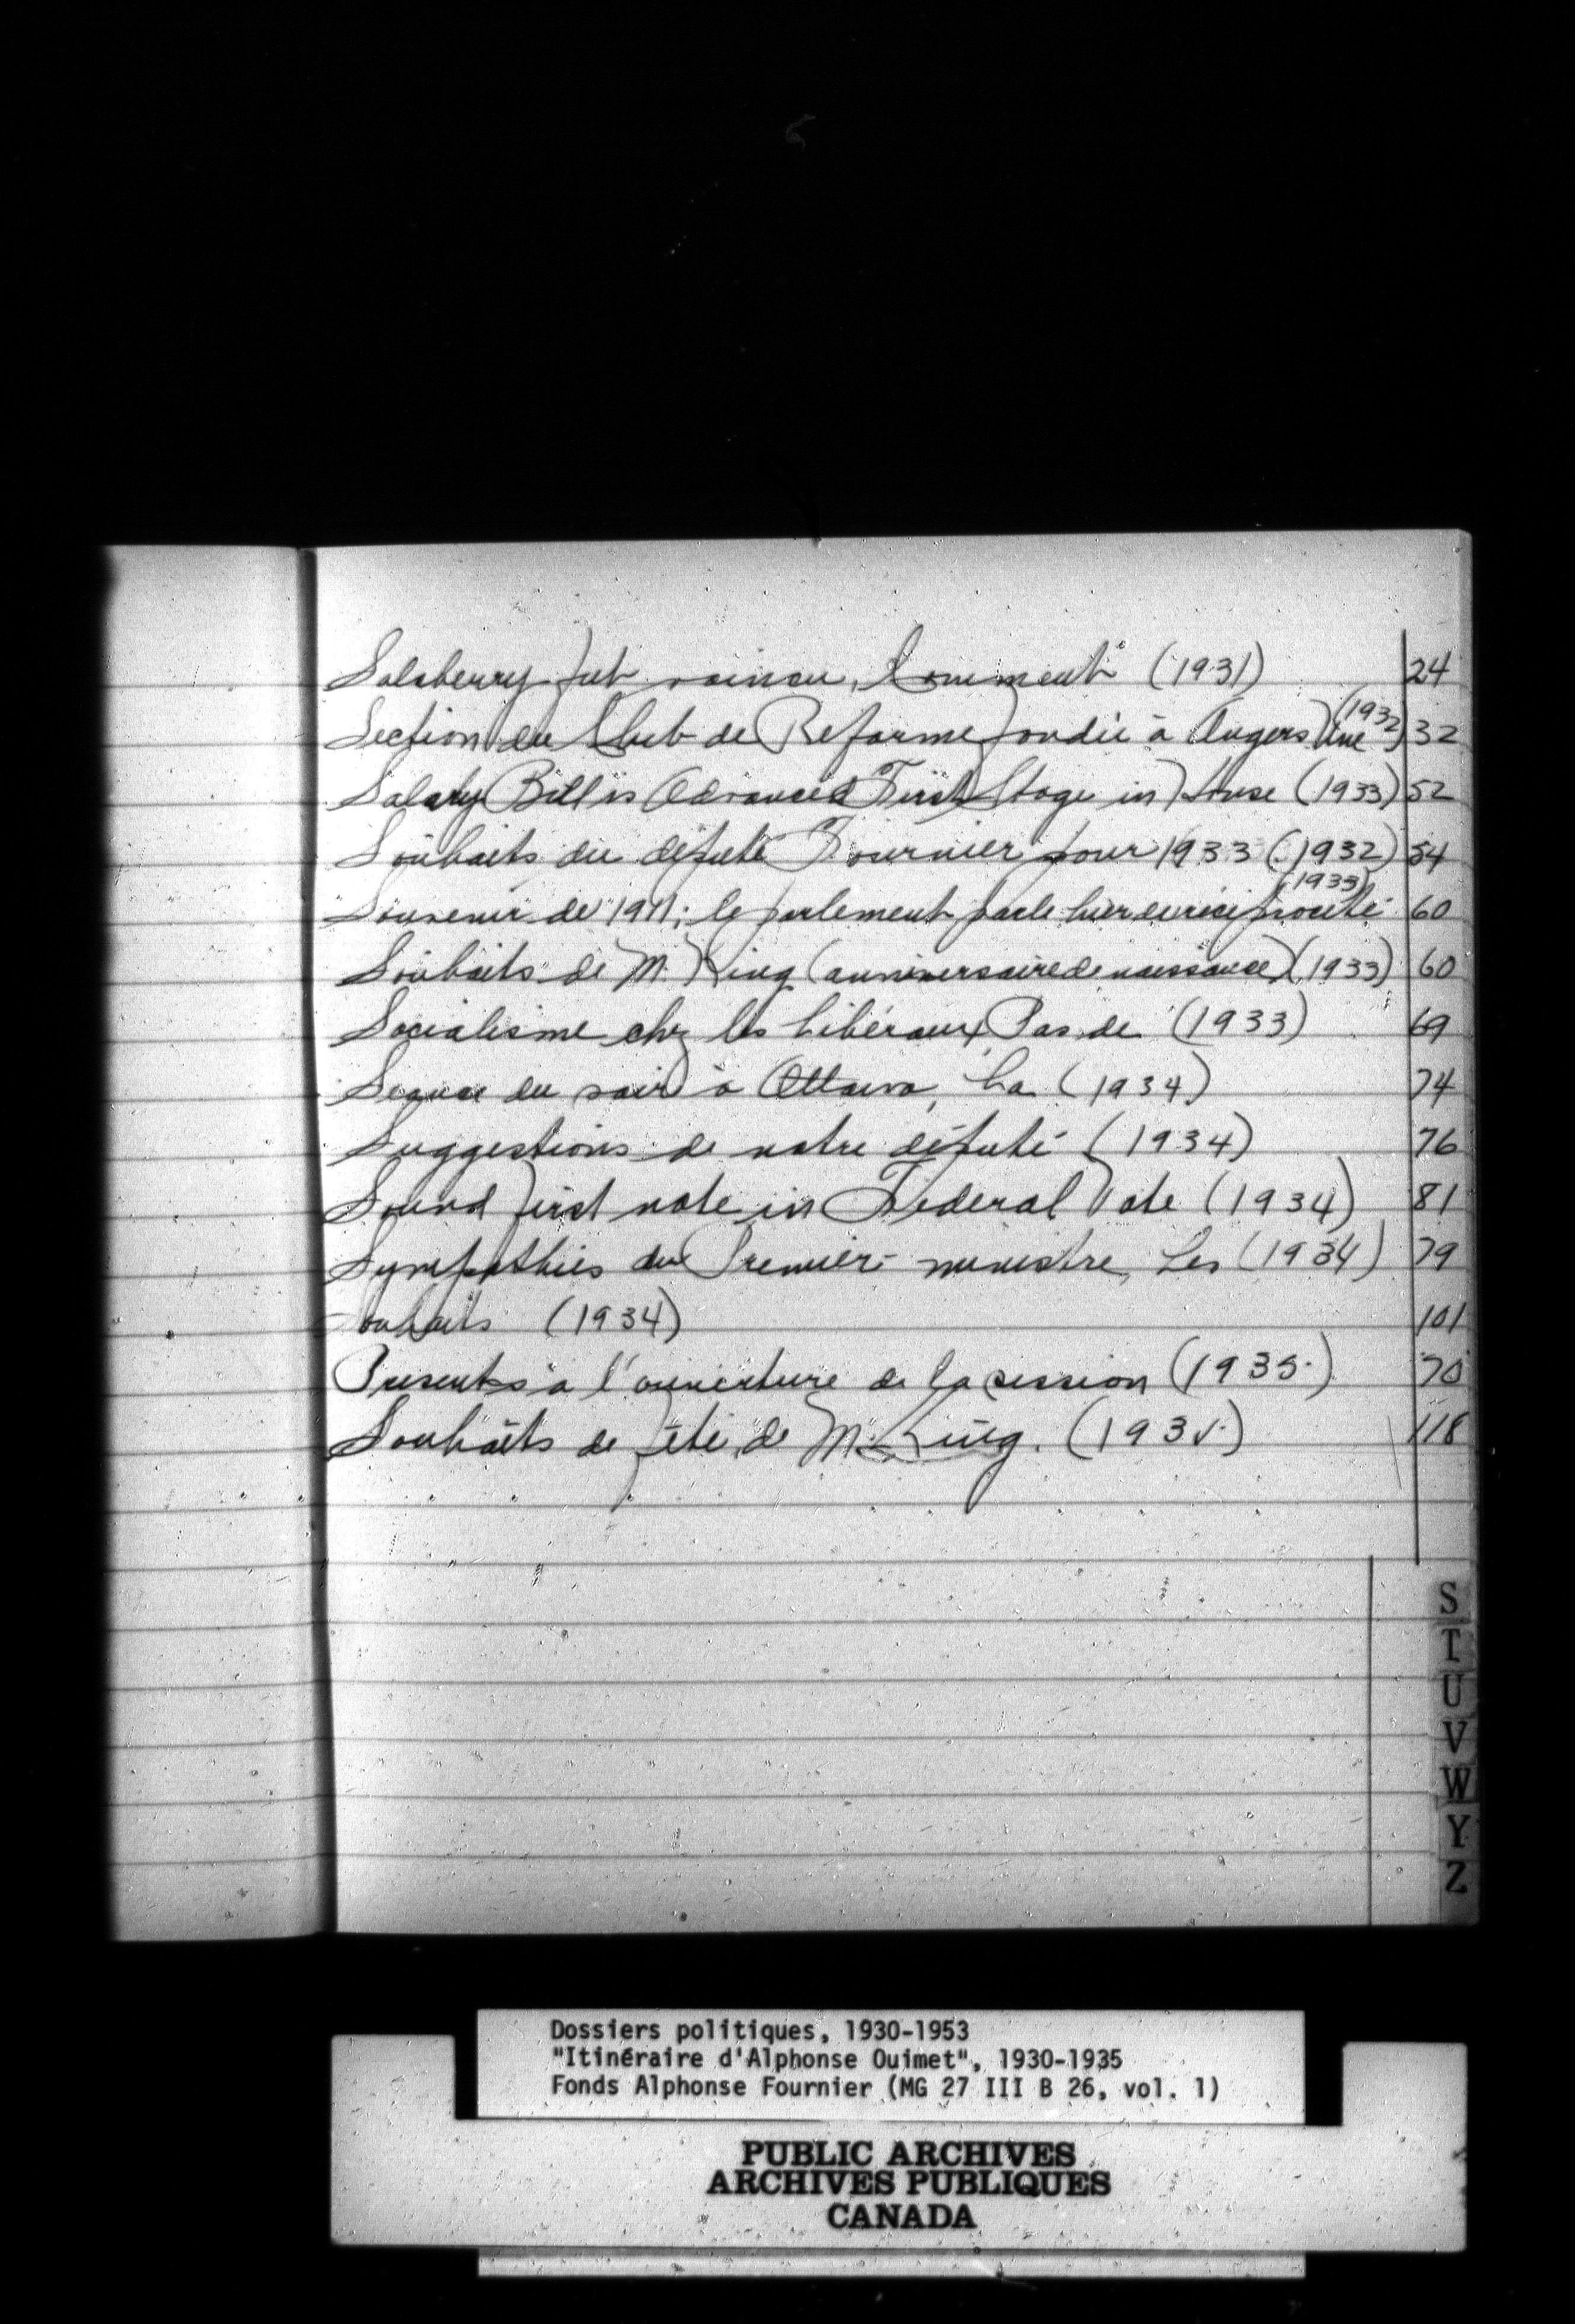 Salaberry fut vaincu, Comment (1931) 24
Section du Club de Reforme fondée à Angers, Une (1932) 32
Salary Bill is Advanced First Stage in House (1933) 52
Souhaits du député Fournier pour 1933 (1932) 54
Souvenir de 1911; le parlement parle hier de réciprocité (1933) 60
Souhaits de M. King (anniversaire de naissance) (1933) 60
Socialisme chez les Libéraux, Pas de (1933) 69
Séance du soir à Ottawa, La (1934) 74
Suggestions de notre député (1934) 76
Sound first note in Federal Vote (1934) 81
Sympathies du Premier-ministre, Les (1934) 79
Souhaits (1934) 101
Présents à l'ouverture de la session (1935) 70
Souhaits de fête de M. King. (1935) 118
S
T
U
V
W
Y
Z
Dossiers politiques, 1930-1953
"Itinéraire d'Alphonse Ouimet", 1930-1935
Fonds Alphonse Fournier (MG 27 III B 26, vol. 1)
PUBLIC ARCHIVES
ARCHIVES PUBLIQUES
CANADA